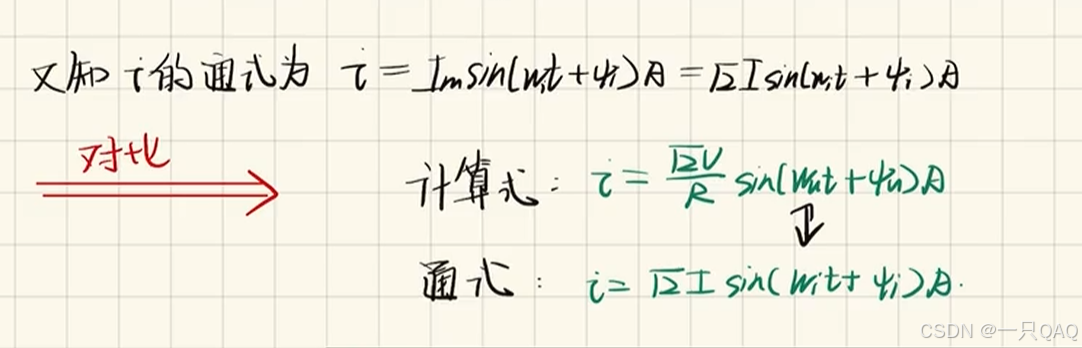 又知 i 的通式为 i = Im sin(ωit + ψi) A = √2 I sin(ωit + ψi) A
对比
计算式: i = √2U/R sin(ωut + ψu) A
⇓
通式: i = √2 I sin(ωit + ψi) A.
CSDN @一只QAQ